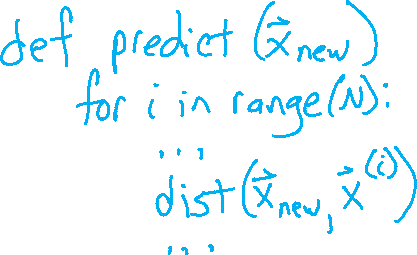 def predict (x⃗new)
for i in range(N):
...
dist(x⃗new, x⃗(i))
...